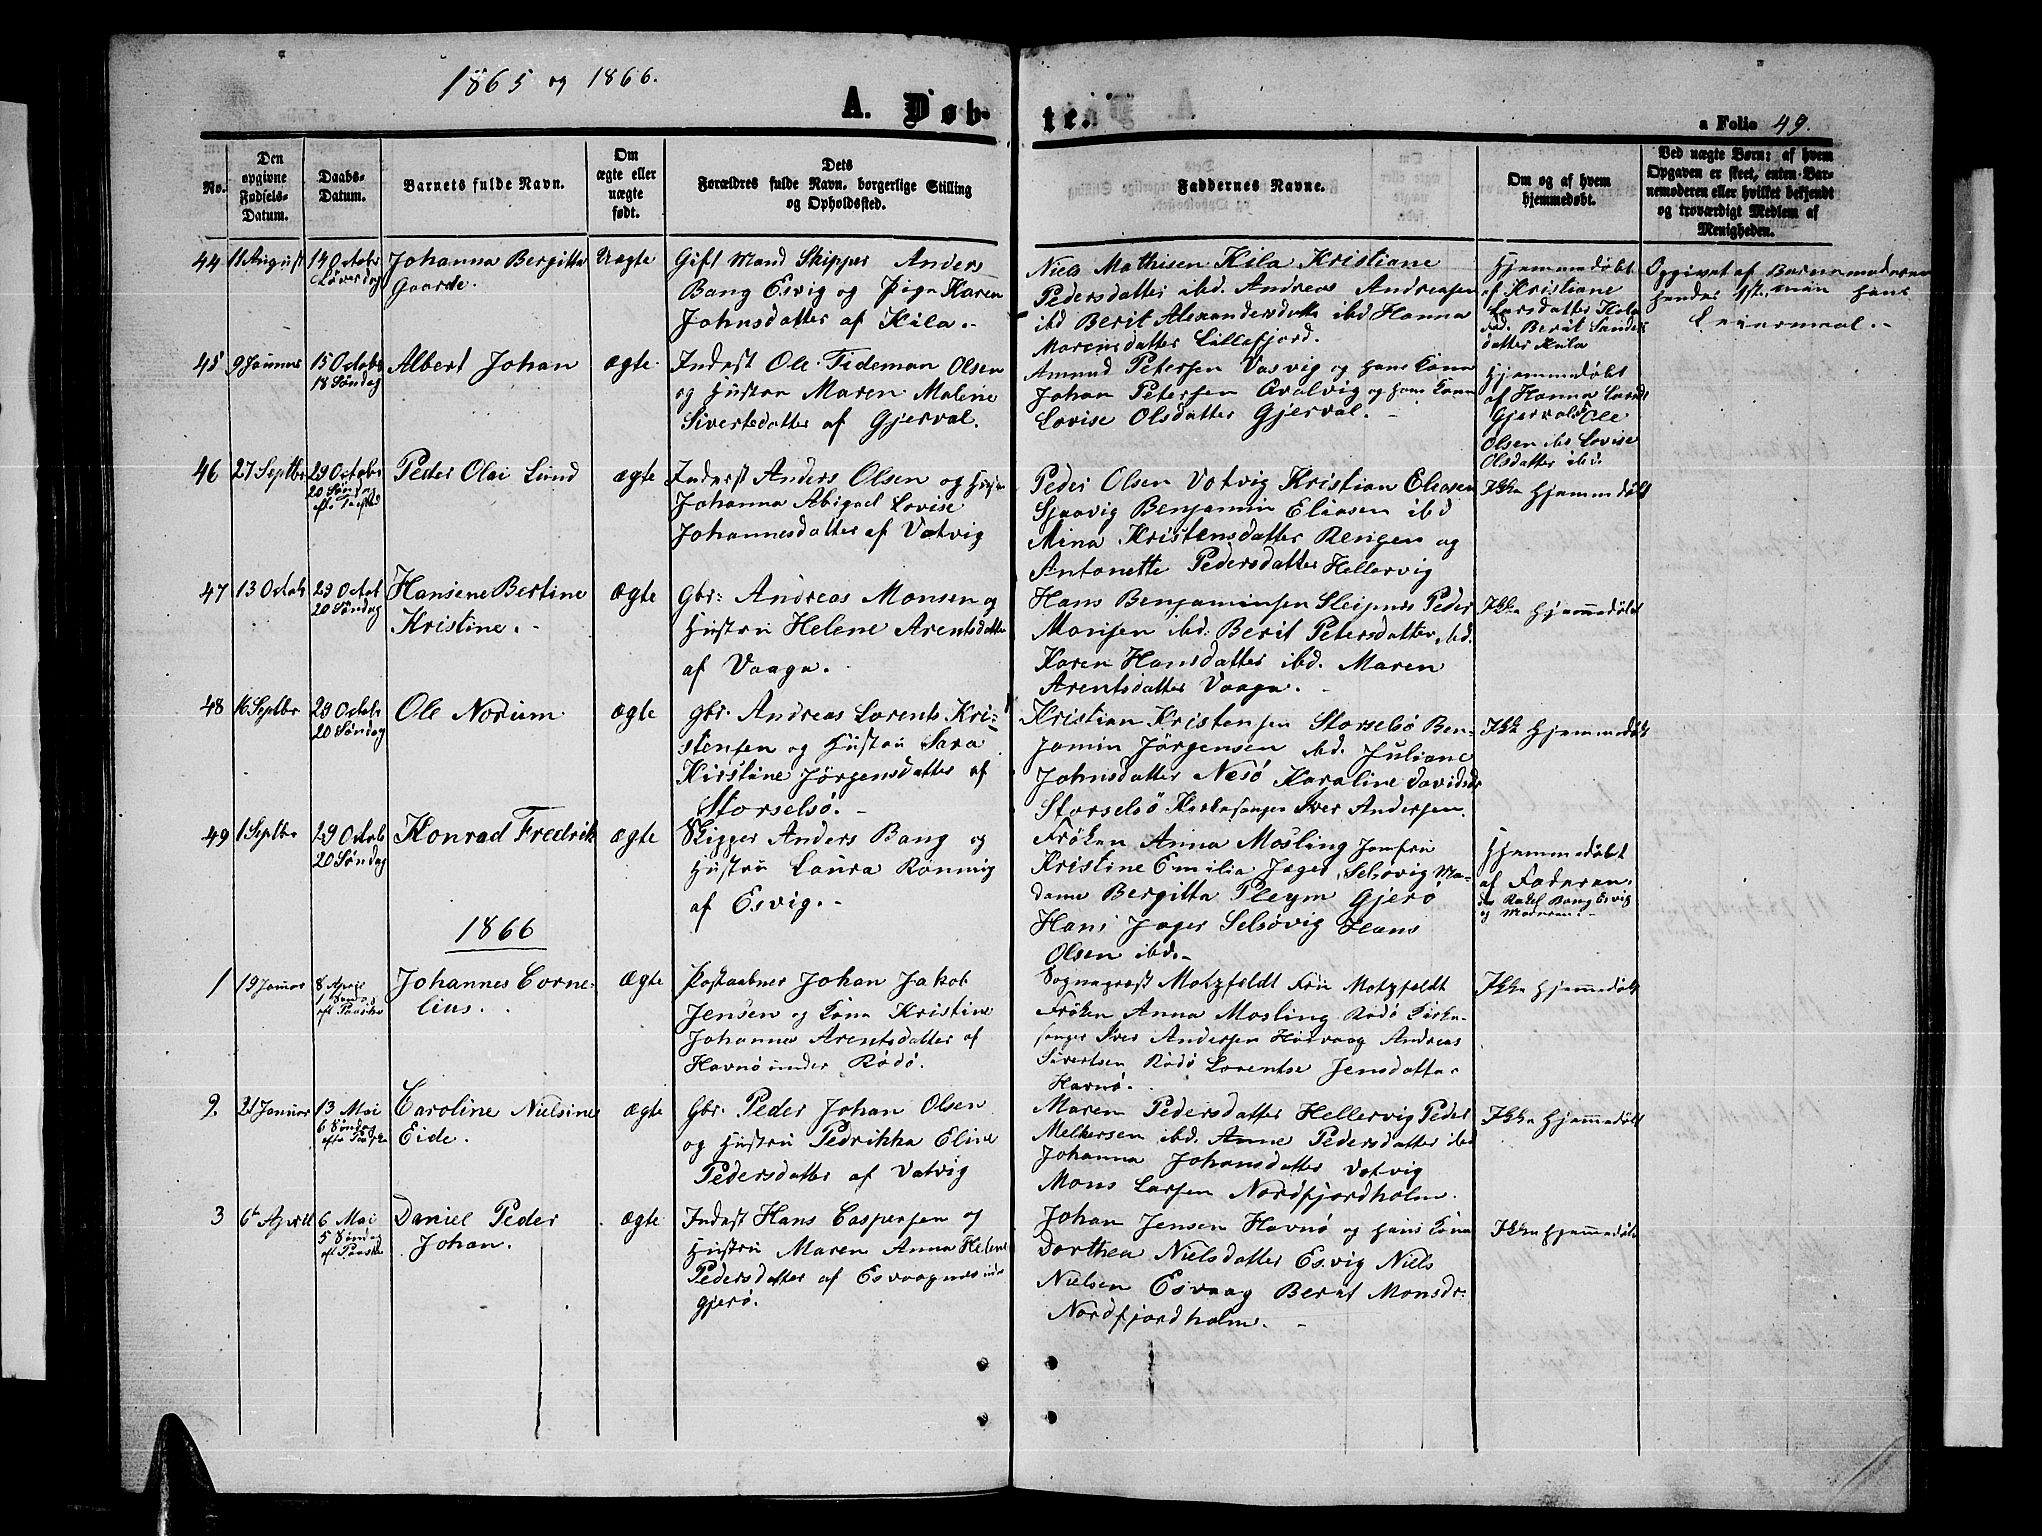 1865 og 1866.
A. Døb-
te.
a Folio 49.
No.
Den
opgivne
Fødsels-
Datum.
Daabs-
Datum.
Barnets fulde Navn.
Om
ægte eller
uægte
født.
Dets
Forældres fulde Navn, borgerlige Stilling
og Opholdssted.
Faddernes Navne.
Om og af hvem
hjemmedøbt.
Ved uægte Børn: af hvem
Opgaven er skeet, enten Bar-
nemoderen eller hvilket bekjendt
og troværdigt Medlem af
Menigheden.
44
11 August
14 Octobr
Løverdag
Johanna Bergitta
Gaarde.
Uægte
Gift Mand Skipper Anders
Bang Esvig og Pige Karen
Johnsdatter af Kila.
Niels Mathisen Kila Kristiane
Pedersdatter ibd. Andreas Andreasen
ibd Berit Alexandersdattr ibd Hanna
Morensdatter Lillefjord.
Hjemmedøbt
af Kristiane
Larsdatter Kila
Fad. Berit Sanders
datter Kila
Opgivet af Barnemoderen
hendes 1ste, men hans
Leiermaal.
45
9 Januar
15 Octobr
18 Søndag
Albert Johan
ægte.
Inderst Ole Tideman Olsen
og Hustru Maren Malene
Sivertsdatter af Gjerval.
Amund Petersen Vasvig og hans Kona
Johan Petersen Qvalvig og hans Kona
Lovise Olsdatter Gjerval.
Hjemmedøbt
af Hanna Larsdr
Gjerval Ole
Olsen ibd Lovise
Olsdatter ibd.
46
27 Septbr
29 Octobr
20 Søndag
Peder Olai Lund
ægte
Inderst Anders Olsen og Hustru
Johanna Abigael Lovise
Johannesdatter af Vatvig
Peder Olsen Vatvig Kristian Eleasen
Sjaavig Benjamin Eliasen ibd
Mina Kristensdatter Rengen og
Antonette Pedersdatter Hellervig
Ikke Hjemmedøbt
47
13 Octobr
29 Octob
20 Søndag
Hansene Bertine
Kristine.
Ægte
Gbr: Andreas Monsen og
Hustru Helene Arentsdatter
af Vaaga.
Hans Benjaminsen Sleipnes Peder
Monsen ibd. Berit Petersdatter ibd.
Karen Hansdatter ibd. Maren
Arentsdatter Vaaga.
Ikke Hjemmedøbt
48
16 Septbr
29 Octobr
20 Søndag
Ole Norum
Ægte
Gbr. Andreas Lorents Kri-
stensen og Hustru Sara
Kirstine Jörgensdatter af
Storselsö.
Kristian Kristensen Storselsö Ben-
jamin Jörgensen ibd. Juliane
Johnsdatter Nesö Karaline Davidsdr
Storselsö Kirkesanger Iver Andersen.
Ikke Hjemmedøbt
49
1 Septbr
29 Octob
20 Søndag
Konrad Fredrik
ægte
Skipper Anders Bang og
Hustru Laura Rønning
af Esvig.
Frøken Anna Mosling Jomfru
Kristine Emilia Jager Selsøvig Ma-
dame Bergitta Pleym Gjerø
Hans Jager Selsøvig Hans
Olsen ibd.
Hjemmedøbt
af Faderen.
Rakel Bang Esvig
og Moderen.
1866
1
19 Januar
8 April
1 Sønd.
eft Paaske
Johannes Corne-
lius.
Ægte
Postaabner Johan Jakob
Jensen og Kona Kristine
Johanna Arentsdatter af
Havnø under Rødø.
Sognepræst Motzfeldt Frue Motzfeldt
Frøken Anna Mosling Rødø Kirke-
sanger Iver Andersen Andreas
Sivertsen Rødø Lorentse Jensdatter
Havnø.
Ikke Hjemmedøbt
2.
21 Januar
13 Mai
6 Søndag
Caroline Nielsine
Eide.
ægte
Gbr. Peder Johan Olsen
og Hustru Pedrikka Eline
Pedersdatter af Vatvig
Maren Pedersdatter Hellervig Peder
Melkersen ibd. Anne Pedersdatter ibd
Johanna Johansdatter Vatvig
Mons Larsen Nordfjordholm.
Ikke Hjemmedøbt
3
6te April
6 Mai
5 Søndag
eft Paaske
Daniel Peder
Johan.
ægte
Inderst Hans Caspersen og
Hustru Maren Anna Helene
Pedersdatter af Esvaagnes
Gjerø.
Johan Jensen Havnø og hans Kona
Dorthea Nielsdatter Esvig Niels
Nielsen Esvaag Berit Monsdr
Nordfjordholm.
Ikke Hjemmedøbt